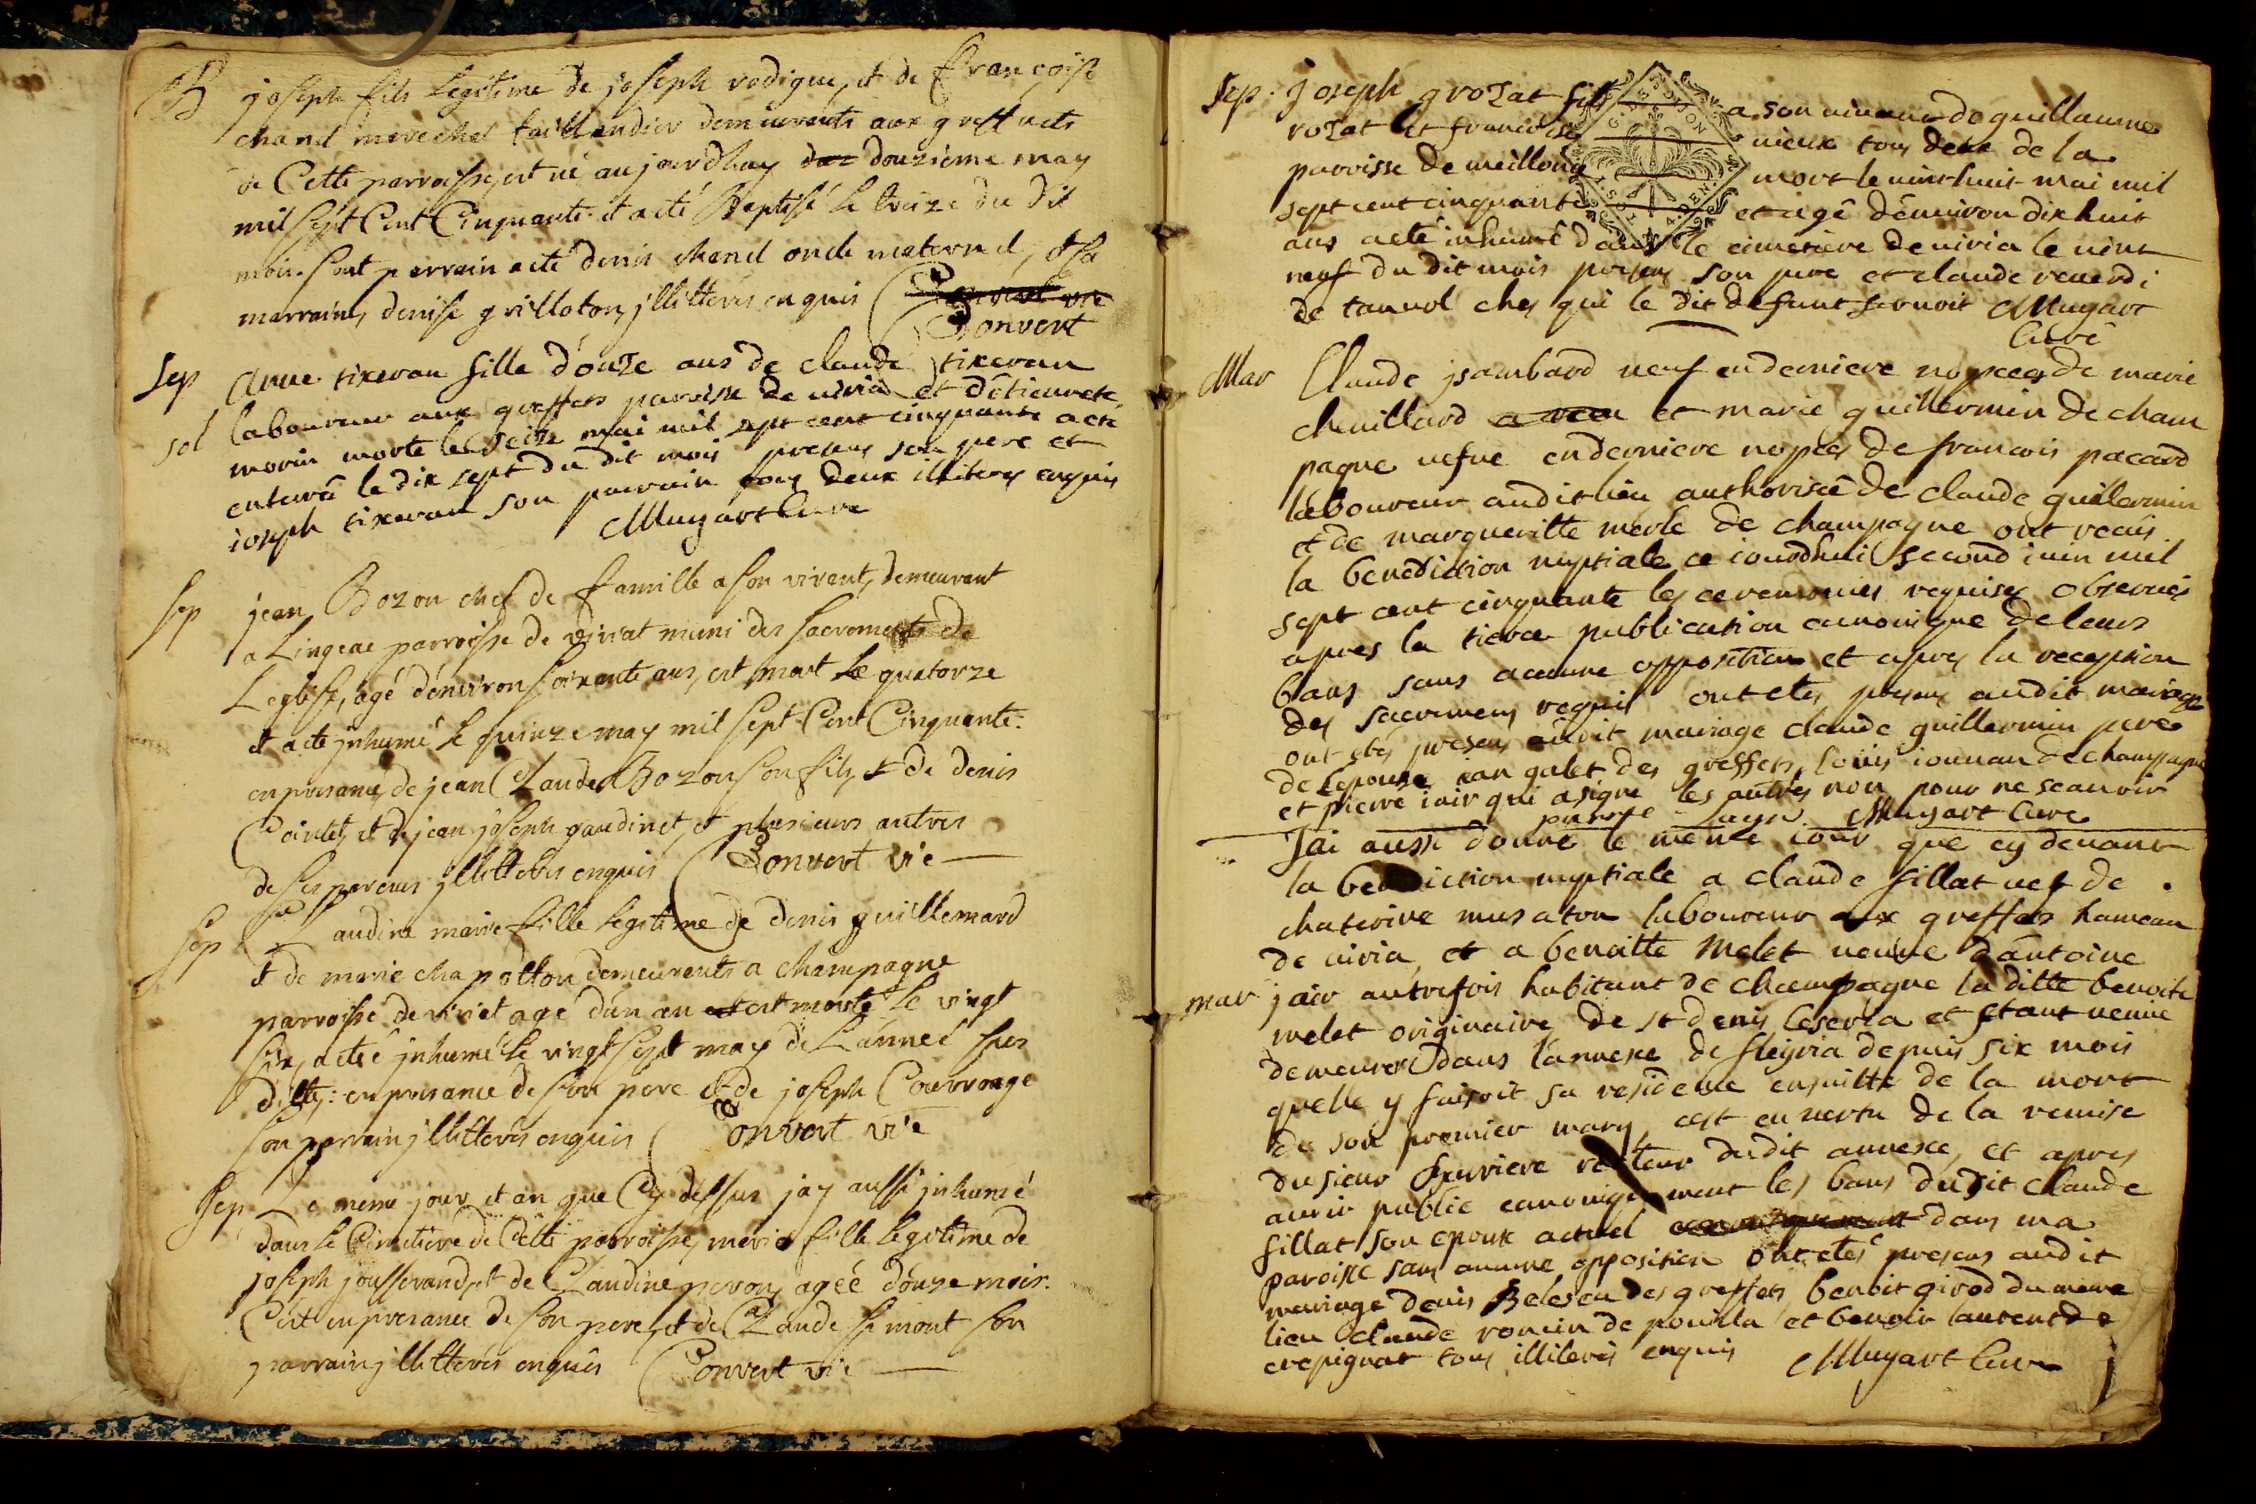 B joseph fils legitime de joseph rodigue, et de françoise
chanel marechal taillandier demeurants aux greffets
de Cette parroisse, est né aujourdhuy douzieme may
mil sept Cent Cinquante. et a eté Baptisé le treize du dit
mois. sont parrain a eté denis chanel oncle maternel, et sa
marraine, denise grilloton, jllitteres enquis
Convert
Sep Anne tixeran fille d'onze ans de claude tixeran
laboureur aux greffets paroisse de viria et d'étiennete
sol morin morte le seize mai mil sept cent cinquante a eté
enterrée le dix sept du dit mois presens son pere et
ioseph tixeran son parrain tous deux illiteres enquis
Mugart Cure
Sep jean Bozon chef de famille a son vivant, demeurant
a Lingeac parroisse de virïat muni des sacrements de
Leglise, agé d'environ soixante ans, est mort le quatorze
et a eté jnhumé le quinze may mil sept Cent Cinquante.
en presance, de jean Claude Bozon son fils, et de denis
Cointet, et de jean joseph gaudinet, et plusieurs autres
de ses parens jllitteres enquis Convert vic
Sep Claudine marie fille legitime de denis guillemard
et de marie chapollon demeurents a champagne
parroisse de viriat agé d'un an est morte le vingt
six, a eté jnhumé le vingt sept may de L'année sus
ditte: en presance de son pere et de joseph Couvrouge
son parrain jllitteres enquis Convert vic
Sep Le meme jour, et an que Cy dessus jay aussi jnhumé
dans le Cimetiere de Cette parroisse, marie fille legitime de
joseph jousserand, et de Claudine peron, agée d'onze mois.
C'est en presance de son pere, et de Claude simont son
parrain jllitteres enquis Convert vic
Sep. joseph grozat fils a son vivant de guillaume
rozat et francoise vieux tous deux de la
paroisse de meillona mort le vint huit mai mil
sept cent cinquante et agé d'environ dix huit
ans a eté inhumé dans le cimetiere de viria le vint
neuf du dit mois presens son pere et claude reverdi
de tanvol ches qui le dit defunt servoit Mugart
Curé
Mar Claude jsambard veuf en derniere nopces de marie
chevillard et marie guillermin de cham
pagne vefve en derniere nopces de francois pacard
laboureur audit lieu authorisée de claude guillermin
et de margueritte merle de champagne ont recus
la benediction nuptiale ce iourdhui second iuin mil
sept cent cinquante les ceremonies requises observées
apres la tierce publication canonique de leurs
bans sans aucune opposition et apres la reception
des sacremens requis ont etes presens audit mairiage
ont etes presens audit mairage claude guillermin pere
de l'epouse ian galet des greffets, louis iounan de champagne
et pierre iair qui a signe les autres non pour ne scauoir
pierre jayr Mugart Cure
Jai aussi donné le meme iour que cy devant
la benediction nuptiale a claude fillat vef de
chaterine musaton laboureur aux greffets hameau
de viria, et a benoitte Melet veuve d'antoine
mar jair autrefois habitant de champagne la ditte benoite
melet originaire de st denis Ceseria et etant venue
demeurer dans l'annexe de fleyria depuis six mois
quelle y faisoit sa residence ensuitte de la mort
de son premier mary, cest en vertu de la remise
du sieur recteur dudit annexe, et apres
auvir publié canoniquement les bans dudit claude
fillat son epoux actuel dans ma
paroisse sans aucune opposition ont etes presens audit
mariage denis Belesen des greffets, benoit girod du meme
lieu claude ronin de pouila et benoit laurent de
crepignat tous illiteres enquis Mugart Cure